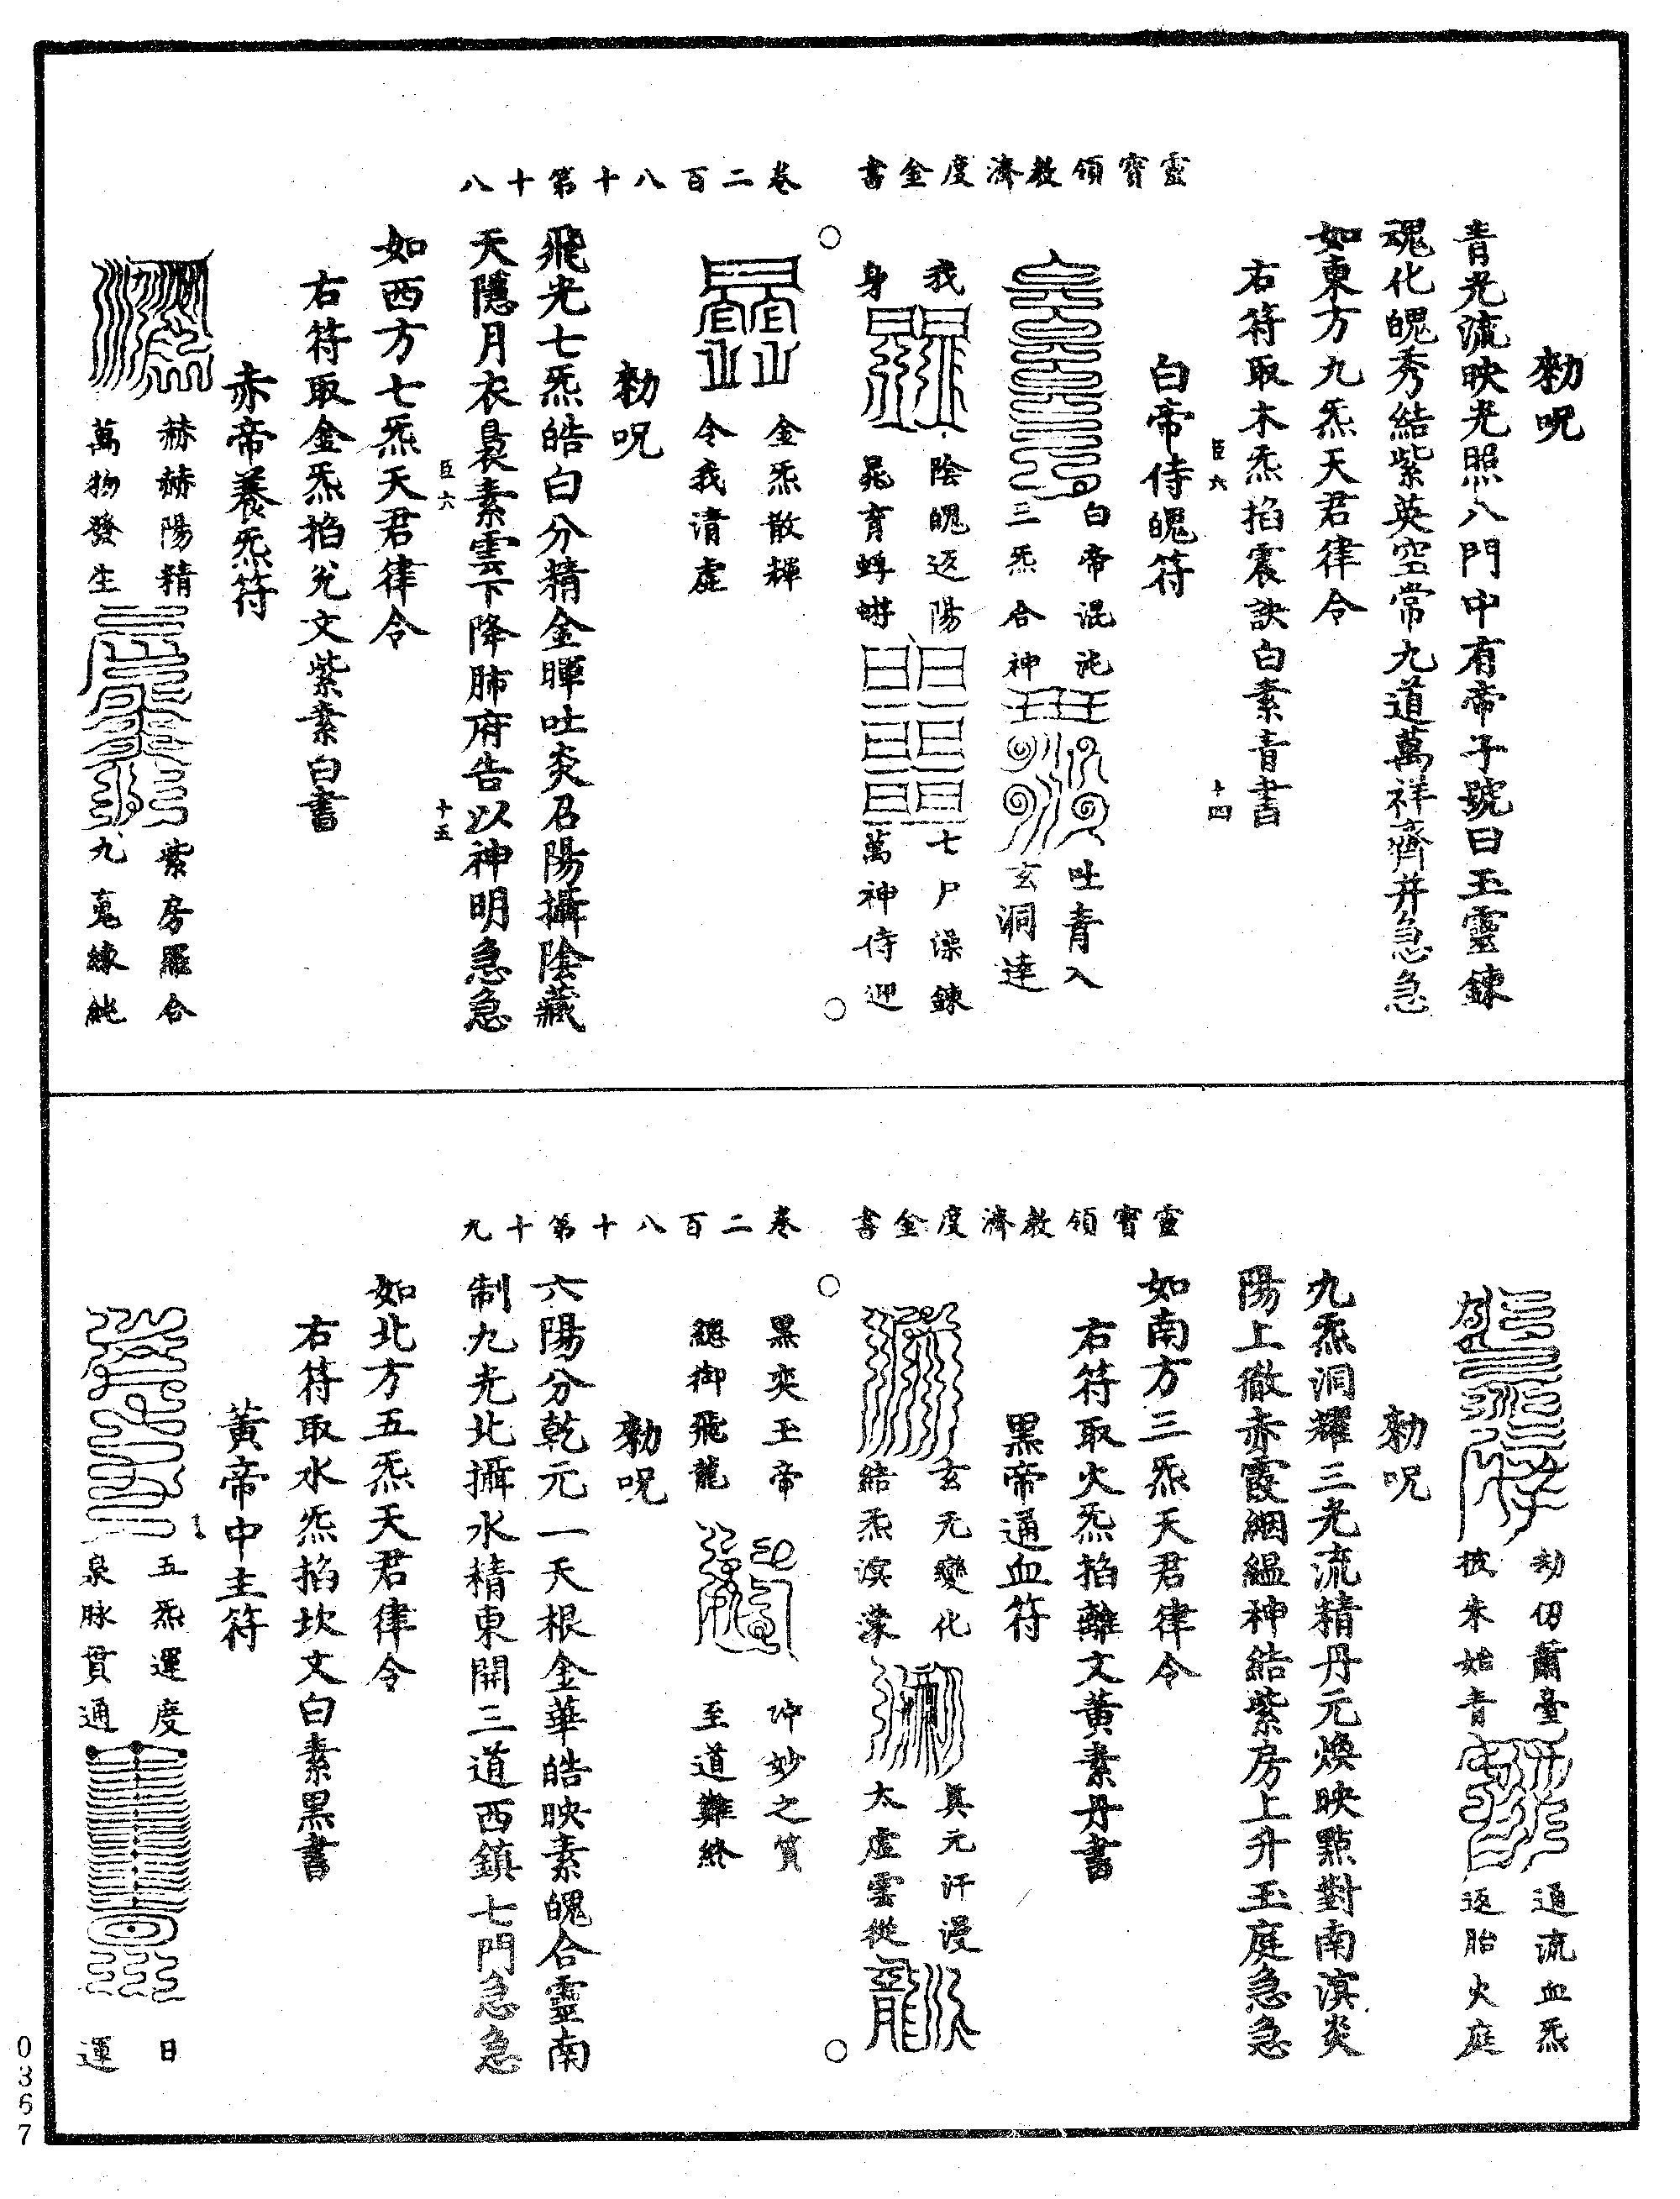 靈寶領教濟度金書 卷二百八十第十八
勑呪
青炁流映光照八門中有帝子號曰玉靈鍊
魂化魄秀結紫英空常九道萬祥齊并急急
如東方九炁天君律令
右符取木炁掐震訣白素青書
臣六 十四
白帝侍魄符
白帝混沌 吐青入
三炁合神 玄洞達
我 陰魄返陽 七尸澡鍊
身 晁育蜉蝣 萬神侍迎
金炁散輝
令我清虛
勑呪
飛光七炁皓白分精金暉吐炎召陽攝陰藏
天隱月衣裊素雲下降肺府告以神明急急
如西方七炁天君律令
臣六 十五
右符取金炁掐兌文紫素白書
赤帝養炁符
赫赫陽精 紫房羅合
萬物發生 九竟練純
靈寶領教濟度金書 卷二百八十第十九
劫仞蕭臺 通流血炁
披朱始青 返胎火庭
勑呪
九炁洞耀三光流精丹元煥映點對南溟炎
陽上徹赤霞絪縕神結紫房上升玉庭急急
如南方三炁天君律令
右符取火炁掐離文黃素丹書
黑帝通血符
玄元變化 真元汗漫
結炁溟濛 太虛雲從
黑奕玉帝 沖妙之質
總御飛龍 至道難終
勑呪
六陽分乾元一天根金華皓映素魄合靈南
制九光北攝水精東開三道西鎮七門急急
如北方五炁天君律令
右符取水炁掐坎文白素黑書
黃帝中主符
五炁運度 日
泉脉貫通 運
0367